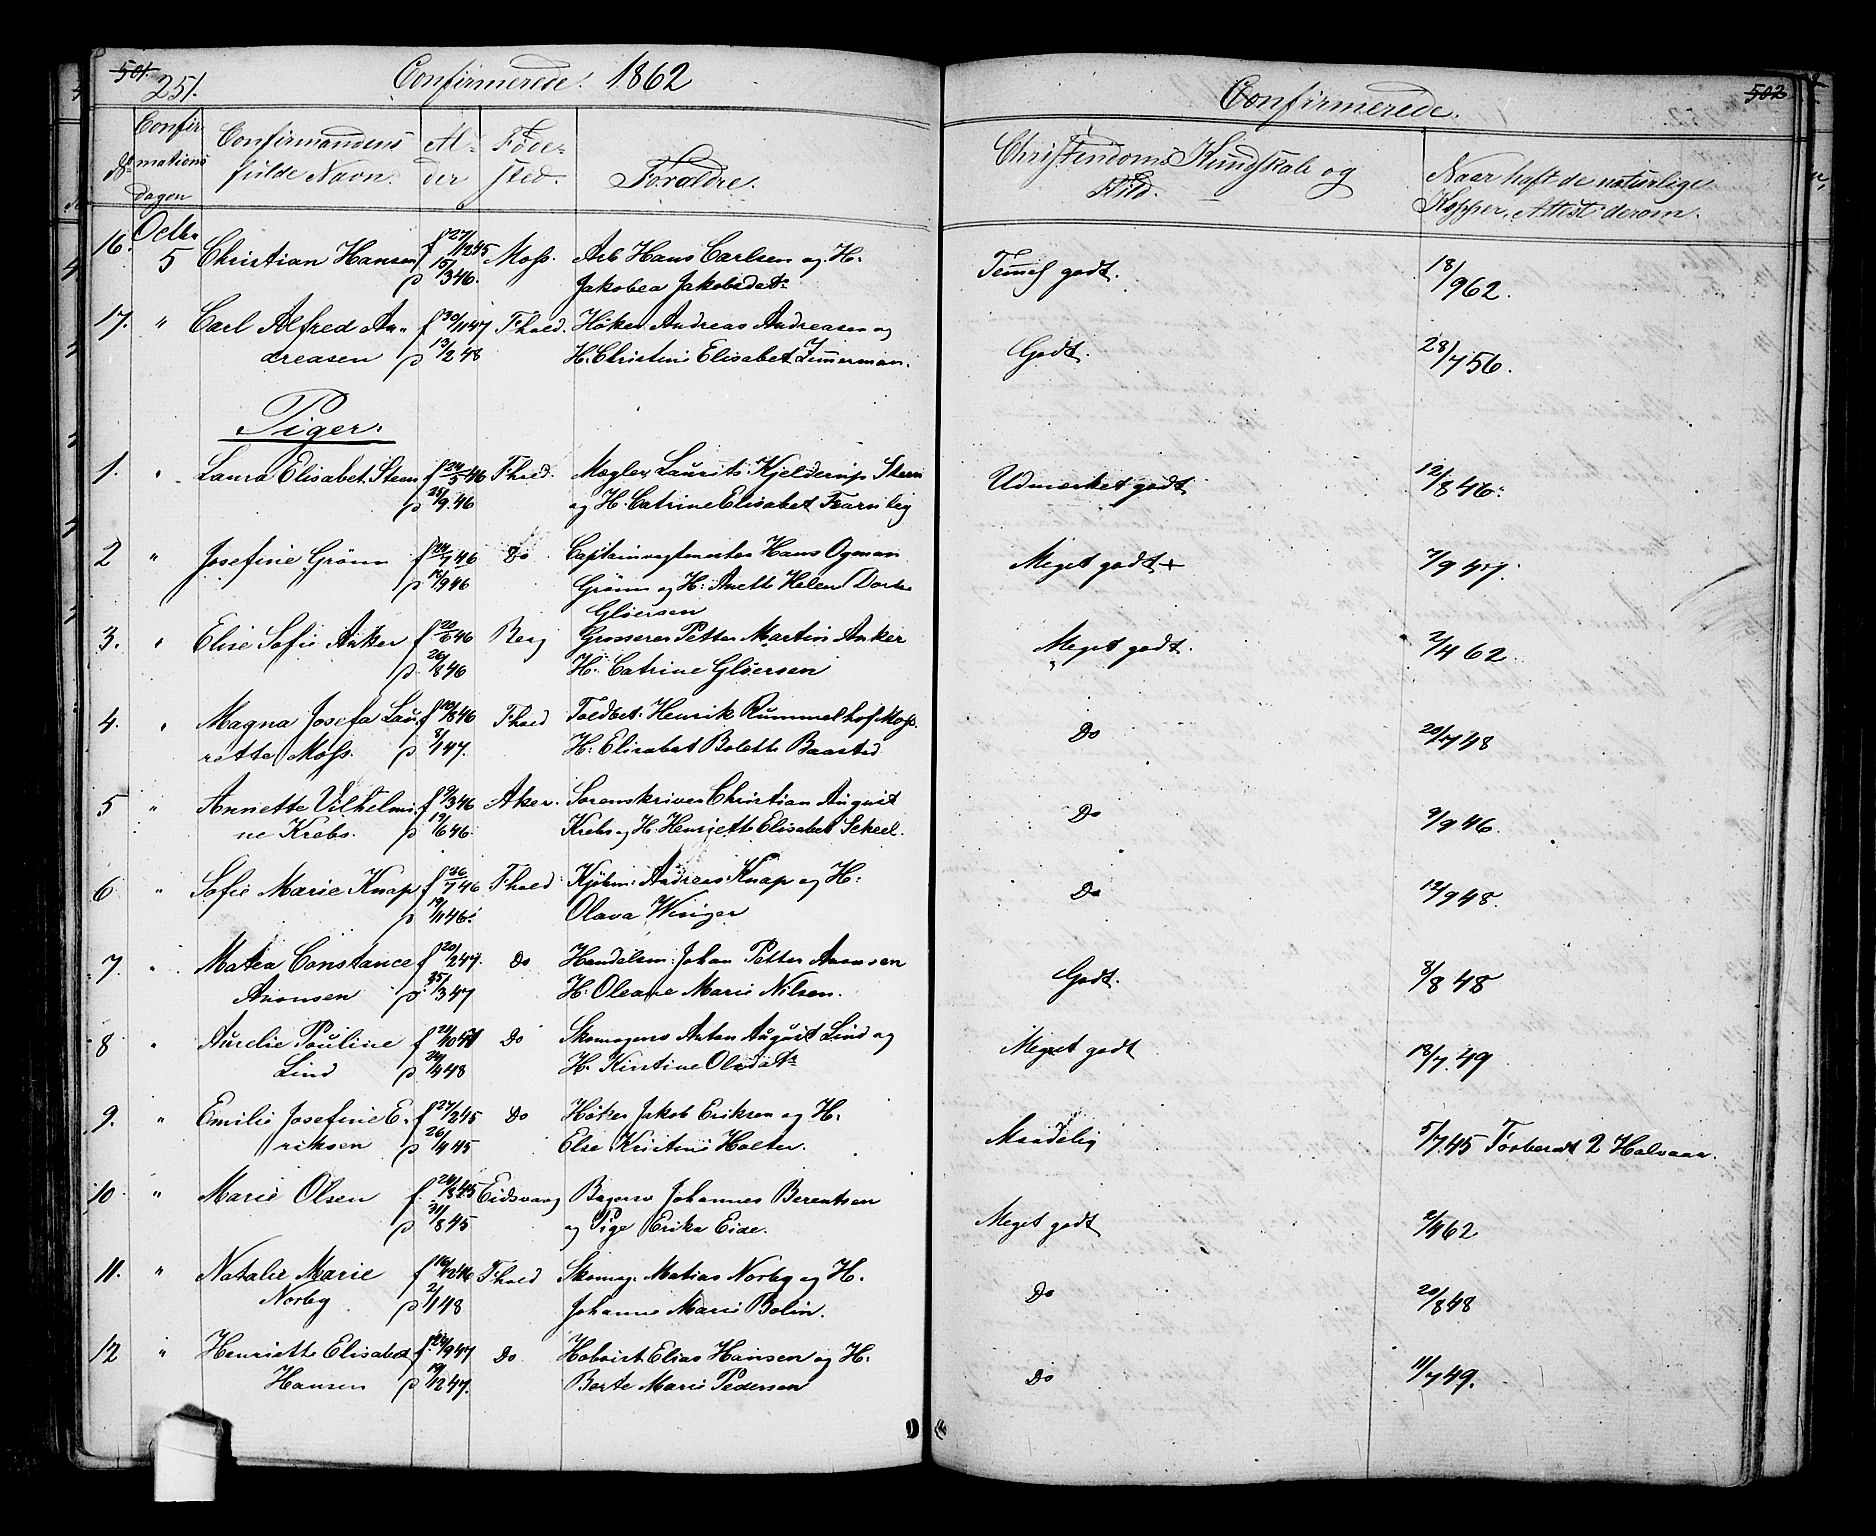 501. 251. Confirmerede. 1862
No Confirmations Dagen | Confirmandens fulde Navn. | Alder | Føde-sted. | Forældre.
16. Octbr 5 Christian Hansen f 27/12 45 Moss. Arb Hans Carlsen og H:
p 15/3 46. Jakobea Jakobsdatr
17. " Carl Alfred An- f 30/11 47 Fhald. Høker Andreas Andreasen og
dreasen p 13/2 48 H. Christine Elisabet Zimmerman.
Piger.
1. " Laura Elisabet Steen f 24/5 46 Fhald. Mægler Laurits Kjelderup Steen
p 25/9 46 og H. Catrine Elisabet Fearnley
2 " Josefine Grønn f 24/7 46 Do Captainvagtmester Hans Ogman
p 14/9 46 Grønn og H: Anette Helen Dorte
Gløersen
3. " Elise Sofie Anker f 20/6 46 Berg Grosserer Petter Martin Anker
p 26/8 46 H: Catrine Gløersen
4. " Magna Josefa Lau- f 10/8 46 Fhald Toldbet: Henrik Rummelhof Moss.
rette Moss. p 8/1 47. H: Elisabet Bolette Baastad
5 " Annette Vilhelmi- f 9/3 46 Aker. Sorenskriver Christian August
ne Krebs. p 19/6 46. Krebs og H. Henriette Elisabet Scheel.
6 " Sofie Marie Knap f 26/7 46 Fhald: Kjøbm: Andreas Knap og H:
p 19/11 46. Olava Winger
7. " Matea Constance f 20/2 47. Do Handelsm: Johan Petter Aronsen
Aronsen p. 25/3 47 H: Oleane Marie Nilsen.
8 " Aurelie Pauline f 21/10 47 Do Skomagers Anton August Lind og
Lind p 24/4 48 H. Kirstine Olsdatr
9. " Emilie Josefine E- f 27/2 45 Do Høker Jakob Eriksen og H:
riksen p 26/4 45 Else Kristine Holter.
10 " Marie Olsen f. 24/3 45 Eidsvaag Bagersv Johannes Berentsen
p 31/8 45 og Pige Erika Eide.
11. " Natalie Marie f 16/12 46 Fhald Skomag. Matias Norby og H.
Norby p 2/1 48 Johanne Marie Bolin.
12 " Henriette Elisabet f 24/9 47 Do Hoboist Elias Hansen og H:
Hansen p 19/12 47. Berte Marie Pedersen
Confirmerede. 502
Christendoms Kundskab og Flid. | Naar haft de naturlige Kopper, Attest derom.
Temel godt. 18/9 62.
Godt. 28/7 56.
Udmærket godt 12/8 46.
Meget godt + 7/9 47.
Meget godt. 2/4 62.
Do 20/7 48
Do 9/9 46.
Do 12/9 48.
Godt. 8/8 48
Meget godt 18/7. 49
Maadelig 5/7. 45 Torberndt 2 Halvaar.
Meget godt 2/4 62
Do 20/8 48
Do 11/7 49.